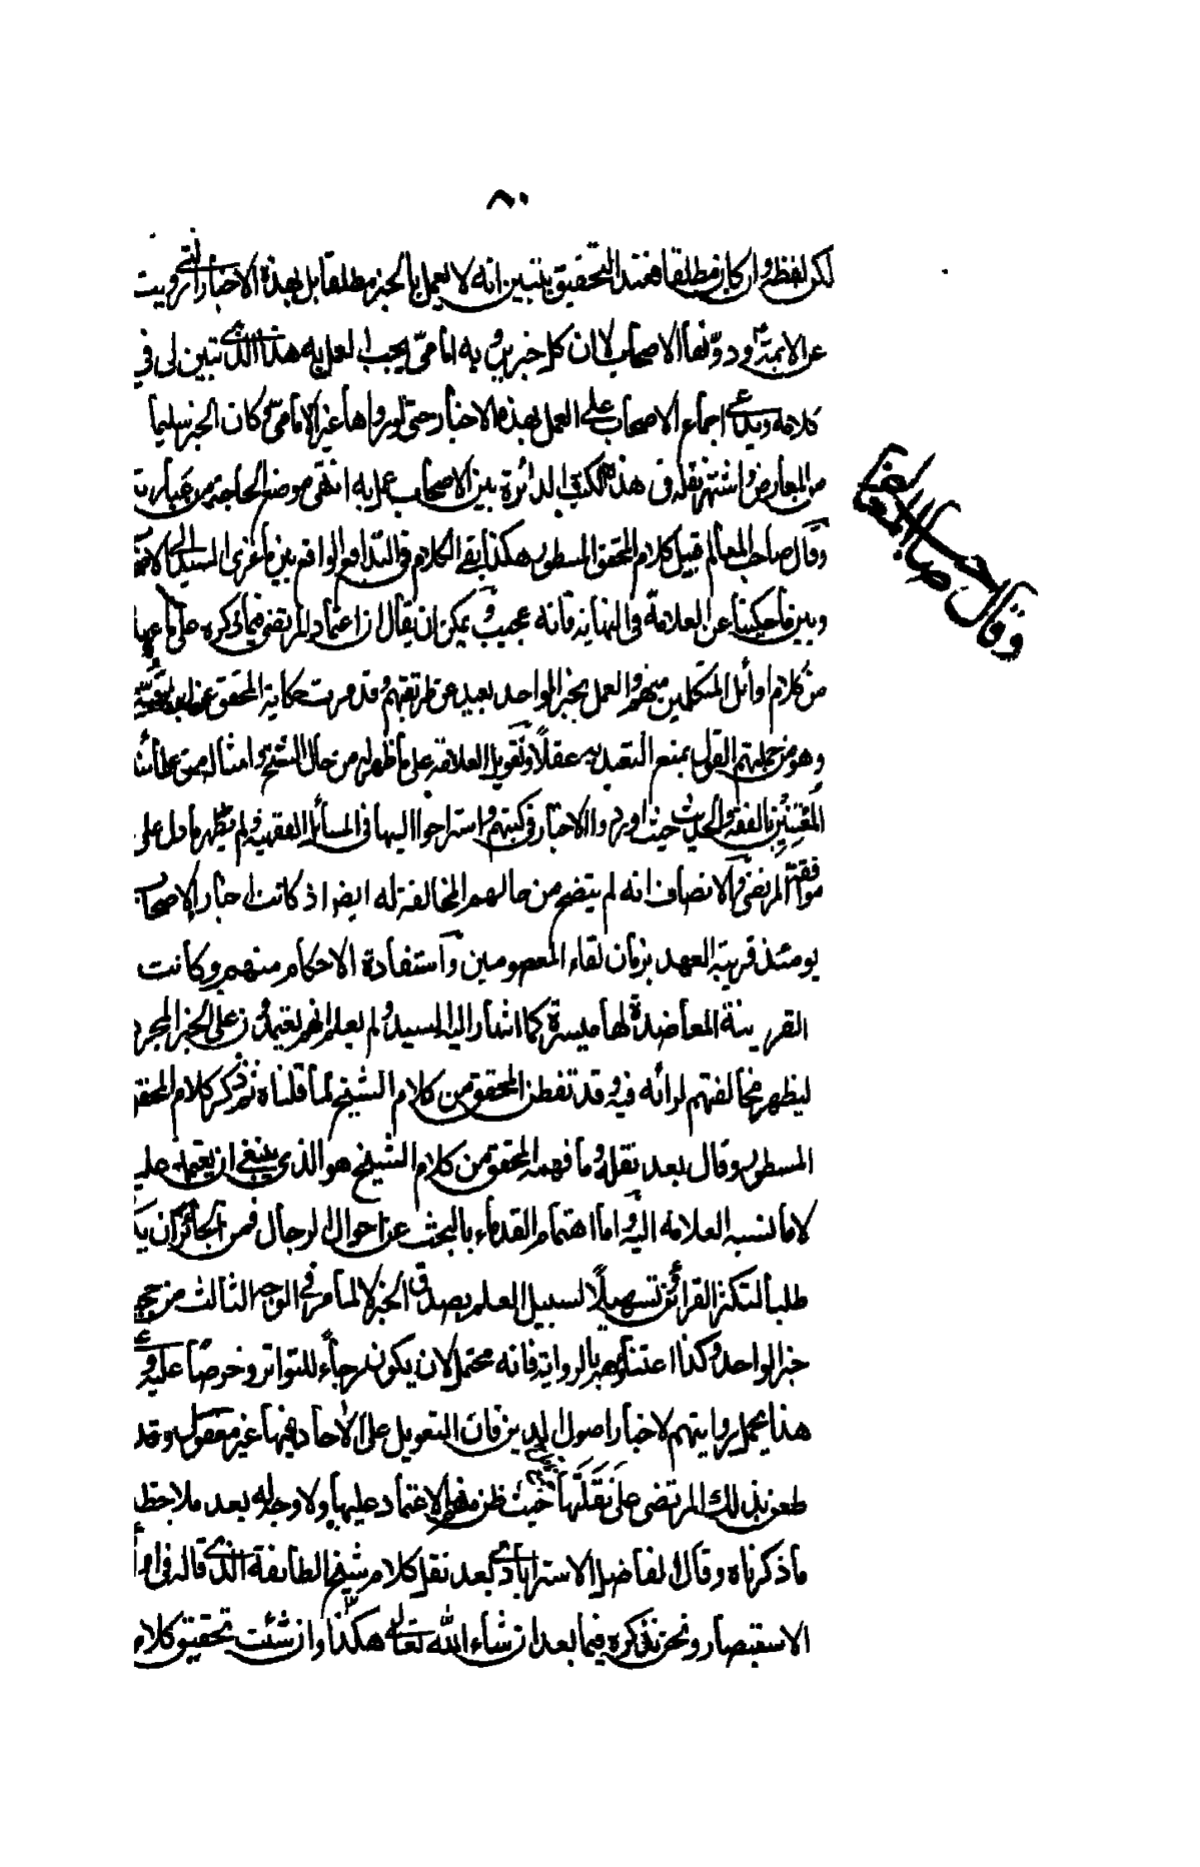 ٨٠
لكن لفظه وان كان مطلقا فعند التحقيق يتبين انه لا يعمل بالخبر مطلقا بل بهذه الاخبار التي رويت
عن الائمة ودونها الاصحاب لا ان كل خبر يرويه امامي يجب العمل به هذا الذي تبين لي في
كلامه ويدعي اجماع الاصحاب على العمل بهذه الاخبار حتى لو رواها غير الامامي وكان الخبر سليما
من المعارض واشتهر نقله في هذه الكتب الدائرة بين الاصحاب عمل به انتهى موضع الحاجة من
وقال صاحب المعالم قبيل كلام المحقق المسطور هكذا بقي الكلام في التدافع الواقع بين ما عزي السيد الى
وبين ما حكيناه عن العلامة في النهاية فانه عجيب ويمكن ان يقال ان اعتماد المرتضى فيما ذكره على ما
من كلام اوائل المتكلمين منهم والعمل بخبر الواحد بعيد عن طريقتهم وقد مرت حكاية المحقق عن
وهو من جملتهم القول بمنع التعبد به عقلا وتعويل العلامة على ما ظهر له من حال الشيخ وامثاله من علمائنا
المعتنين بالفقه والحديث حيث اوردوا الاخبار في كتبهم واستراحوا اليها في المسائل الفقهية ولم يظهر ما دل على
موافقة المرتضى والانصاف انه لم يتضح من حالهم المخالفة له ايضا اذ كانت اخبار الاصحاب
يومئذ قريبة العهد بزمان لقاء المعصومين واستفادة الاحكام منهم وكانت
القرينة المعاضدة لها ميسرة كما اشار اليه السيد ولم يعلم انهم يعتمدون على الخبر المجرد
ليظهر مخالفتهم لرأيه فيه وقد تفطن المحقق من كلام الشيخ لما قلناه ثم ذكر كلام المحقق
المسطور وقال بعد نقله وما فهمه المحقق من كلام الشيخ هو الذي ينبغي ان يعتمد عليه
لا ما نسبه العلامة اليه واما اهتمام القدماء بالبحث عن احوال الرجال فمن الجائز ان
طلبا لتكثر القرائن تسهيلا لسبيل العلم بصدق الخبر لا لما مر في الوجه الثالث من
خبر الواحد وكذا اعتناؤهم بالرواية فانه محتمل لان يكون رجاء للتواتر وحرصا عليه وعلى
هذا يحمل روايتهم لاخبار اصول الدين فان التعويل على الاحاد فيها غير معقول وقد
طعن بذلك المرتضى على نقلتها حيث ظن منهم الاعتماد عليها ولا وجه له بعد ملاحظة
ما ذكرناه وقال الفاضل الاسترابادي بعد نقل كلام شيخ الطائفة الذي قاله في
الاستبصار ونحن نذكره فيما بعد ان شاء الله تعالى هكذا وان شئت تحقيق كلام
وقال صاحب المعالم